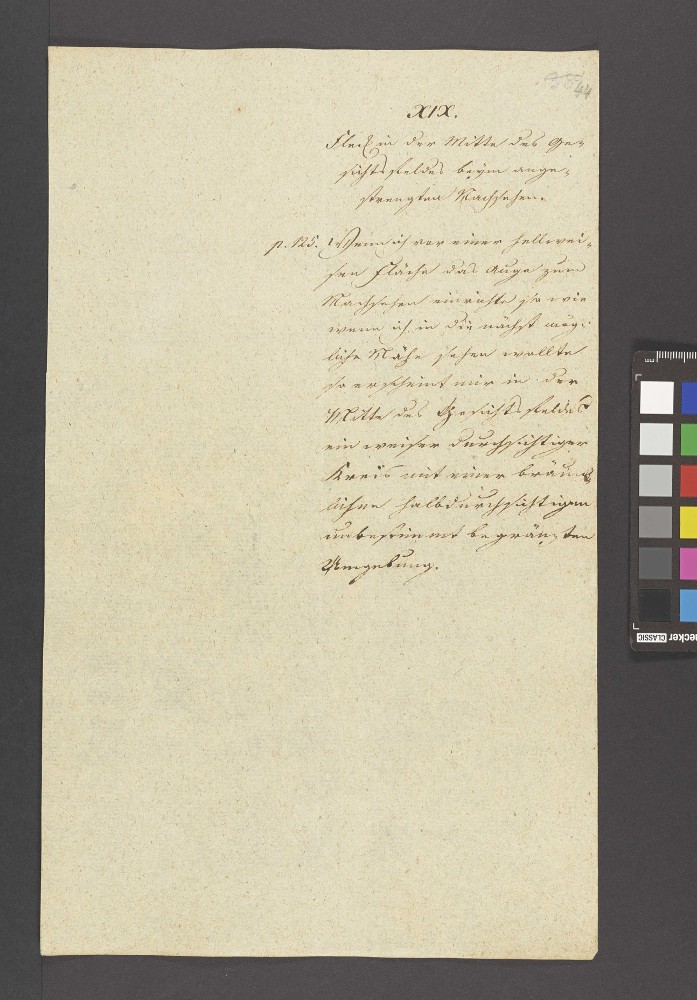 44
XIX.
Fleck in der Mitte des Ge-
sichtsfeldes beym ange-
strengten Nachsehen.
p. 125. Wenn ich vor einer hellwei-
sen Fläche das Auge zum
Nachsehen einrichte so wie
wenn ich in die nächst mög-
liche Nähe sehen wollte
so erscheint mir in der
Mitte des Gesichtsfeldes
ein weiser durchsichtiger
Kreis mit einer bräun-
lichen halbdurchsichtigen
unbestimmt begränzten
Umgebung.
CLASSIC